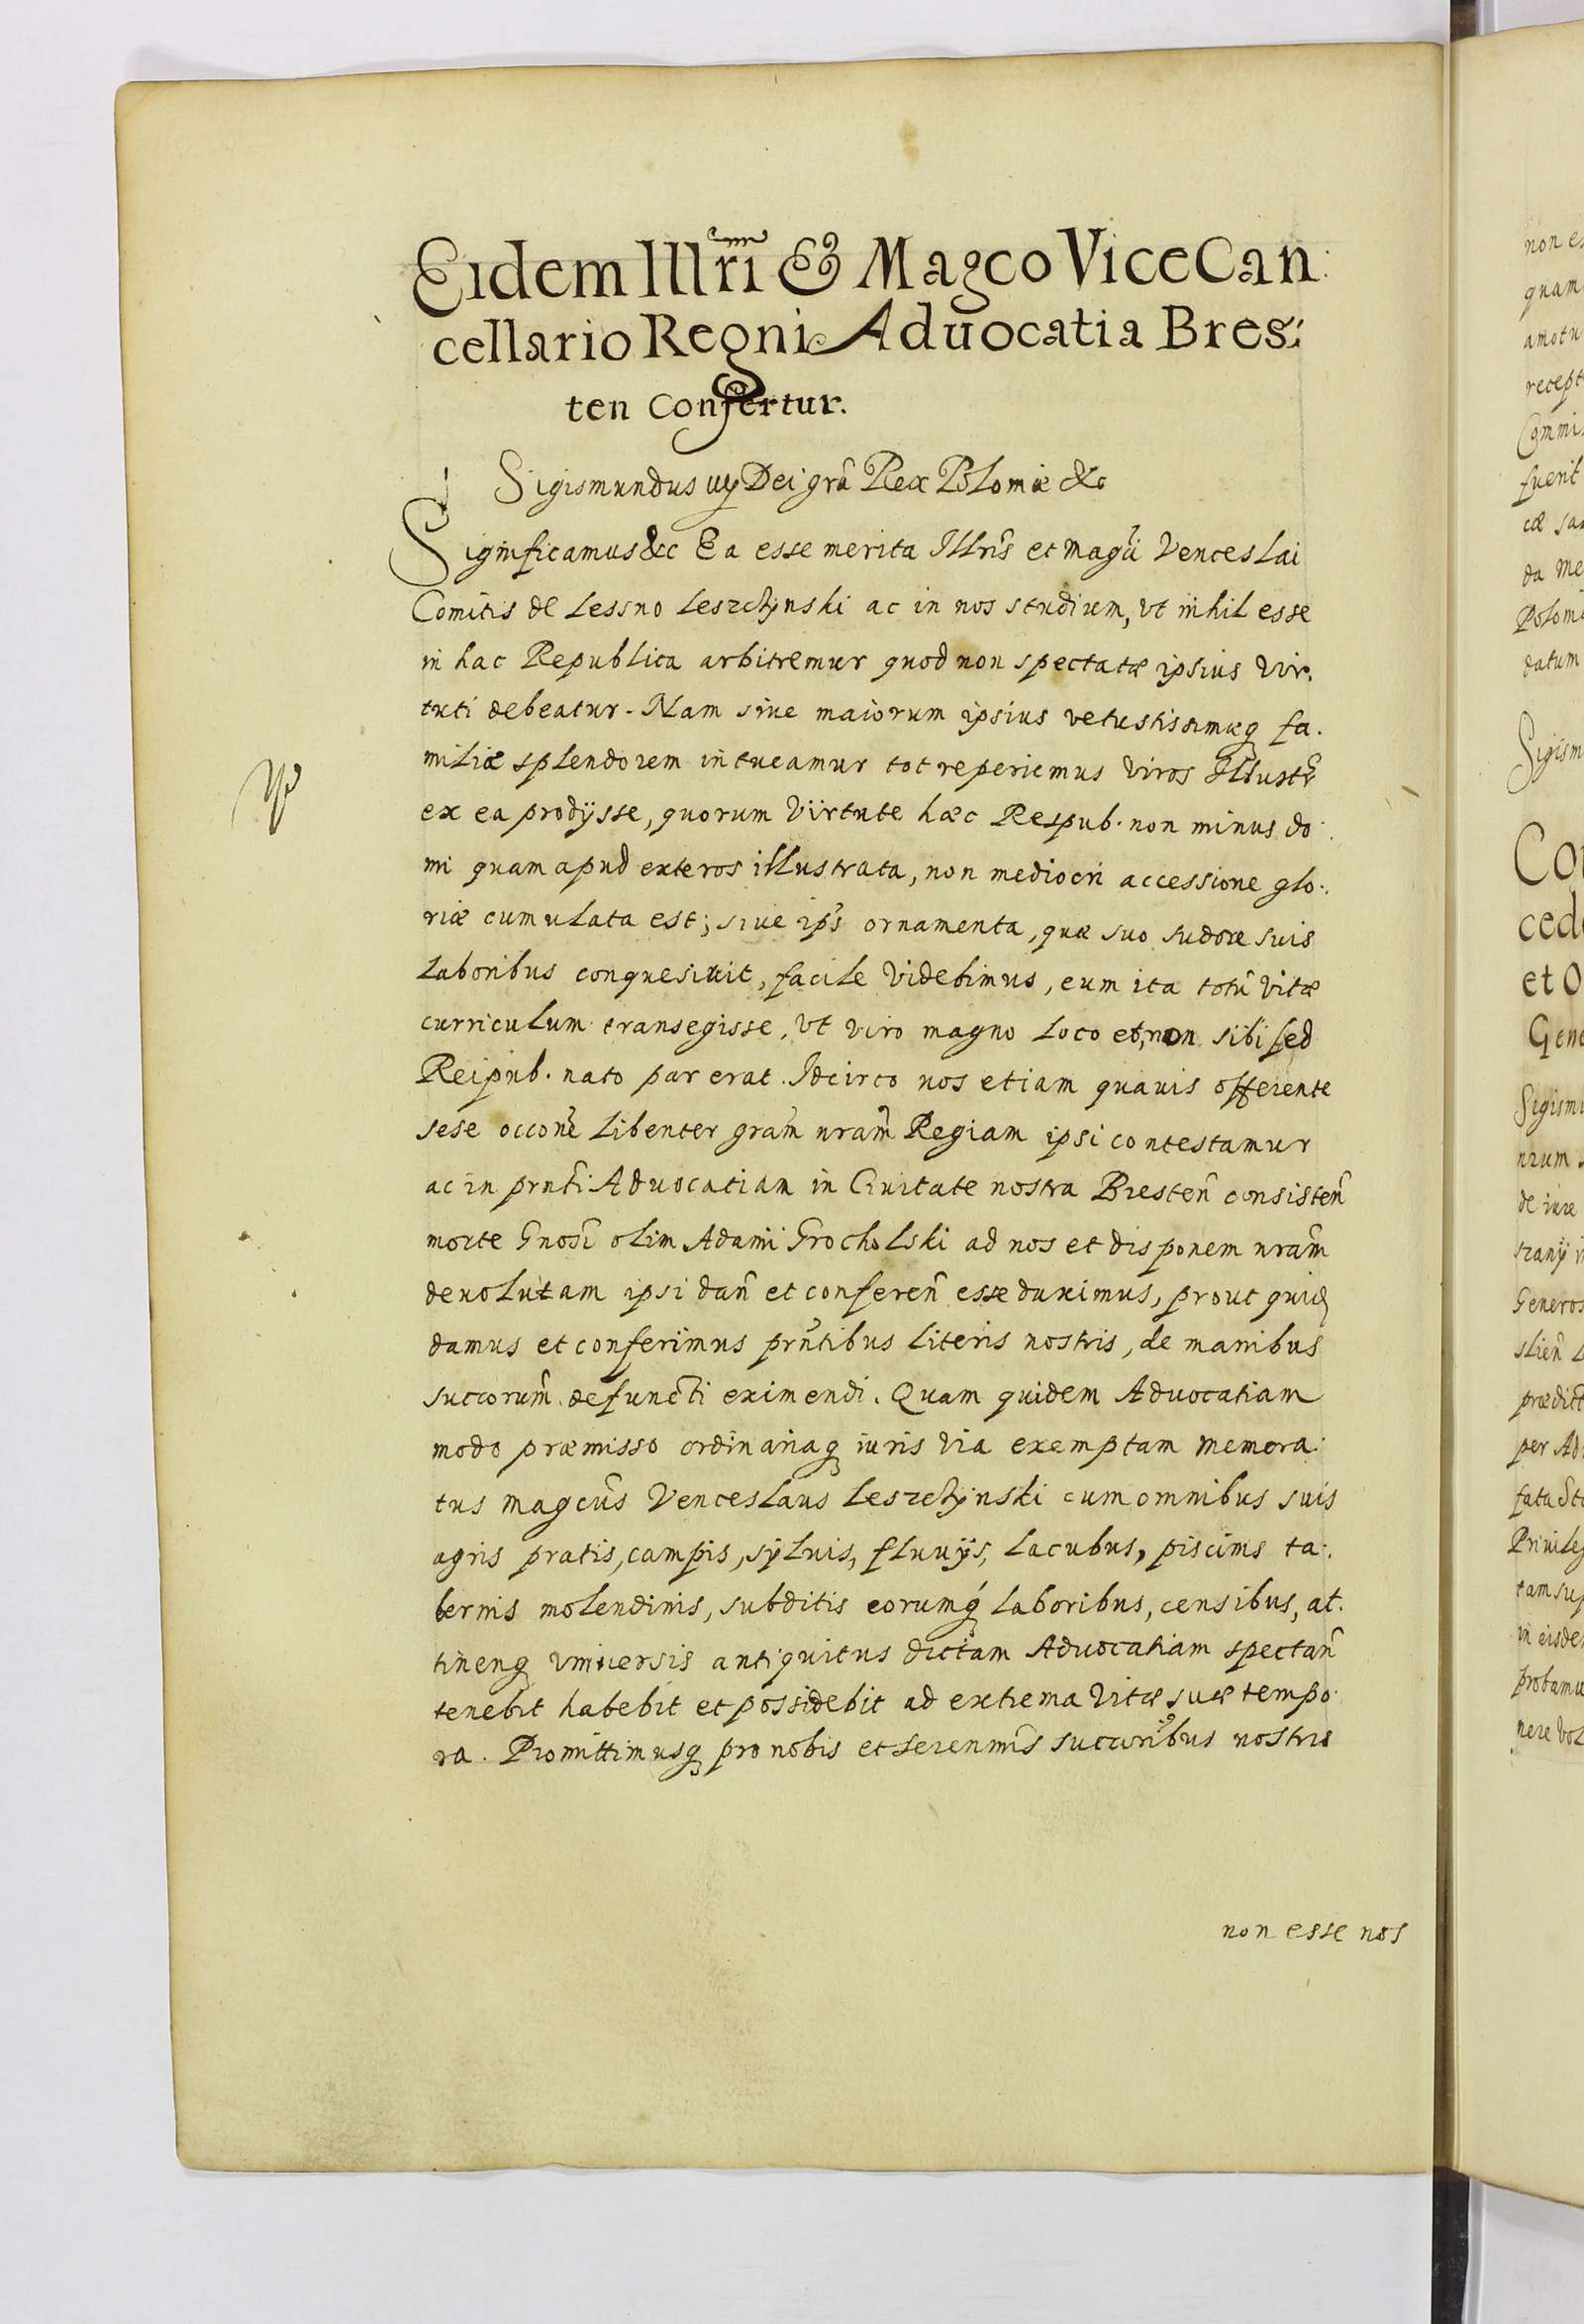 Eidem Illr̃i & Magco ViceCan:
cellario Regni Aduocatia Bres:
ten Confertur.
Sigismundus iij Dei grã Rex Poloniæ &c
Significamus &c Ea esse merita Illris̃ et magci Venceslai
Comitis de Lessno Leszchÿnski ac in nos studium, vt nihil esse
in hac Republica arbitremur quod non spectatæ ipsius vir.
tuti debeatur. Nam siue maiorum ipsius vetustissimæq fa.
miliæ splendorem intueamur tot reperiemus viros Illustr̃
ex ea prodijsse, quorum virtute hæc Respub. non minus do:
mi quam apud exteros illustrata, non mediocri accessione glo:
riæ cumulata est; siue ips̃ ornamenta, quæ suo sudore suis
laboribus conquesiuit, facile videbimus, eum ita totũ vitæ
curriculum transegisse, vt viro magno loco et, non sibi sed
Reipub. nato par erat. Idcirco nos etiam quauis offerente
sese occonẽ libenter gram̃ nram̃ Regiam ipsi contestamur
ac in prnti Aduocatiam in Ciuitate nostra Bresteñ consisteñ
morte Gnosi olim Adami Grocholski ad nos et disponem nram̃
deuolutam ipsi dañ et confereñ esse duximus, prout quidẽ
damus et conferimus prñtibus literis nostris, de manibus
succorum̃ defuncti eximendi. Quam quidem Aduocatiam
modo præmisso ordinariaq iuris via exemptam memora:
tus magcus̃ Venceslaus Leszchÿnski cum omnibus suis
agris pratis, campis, sÿluis, fluuijs, lacubus, piscinis ta:
bernis molendinis, subditis eorumq́ laboribus, censibus, at.
tineñq vniuersis antiquitus dictam Aduocatiam spectañ
tenebit habebit et possidebit ad extrema vitæ suæ tempo:
ra. Promittimusq pro nobis et serenmis̃ succoribus nostris
non esse nos
non es
quam
amotu
recept
Commi
fuerit
cæ sa
da me
Poloni
datum
Sigism
Co
ced
et O
Gene
Sigism
nium
de iure
Generos
prædict
per Ad
fata St
Priuile
tam sup
in eisde
probamu
nere vol